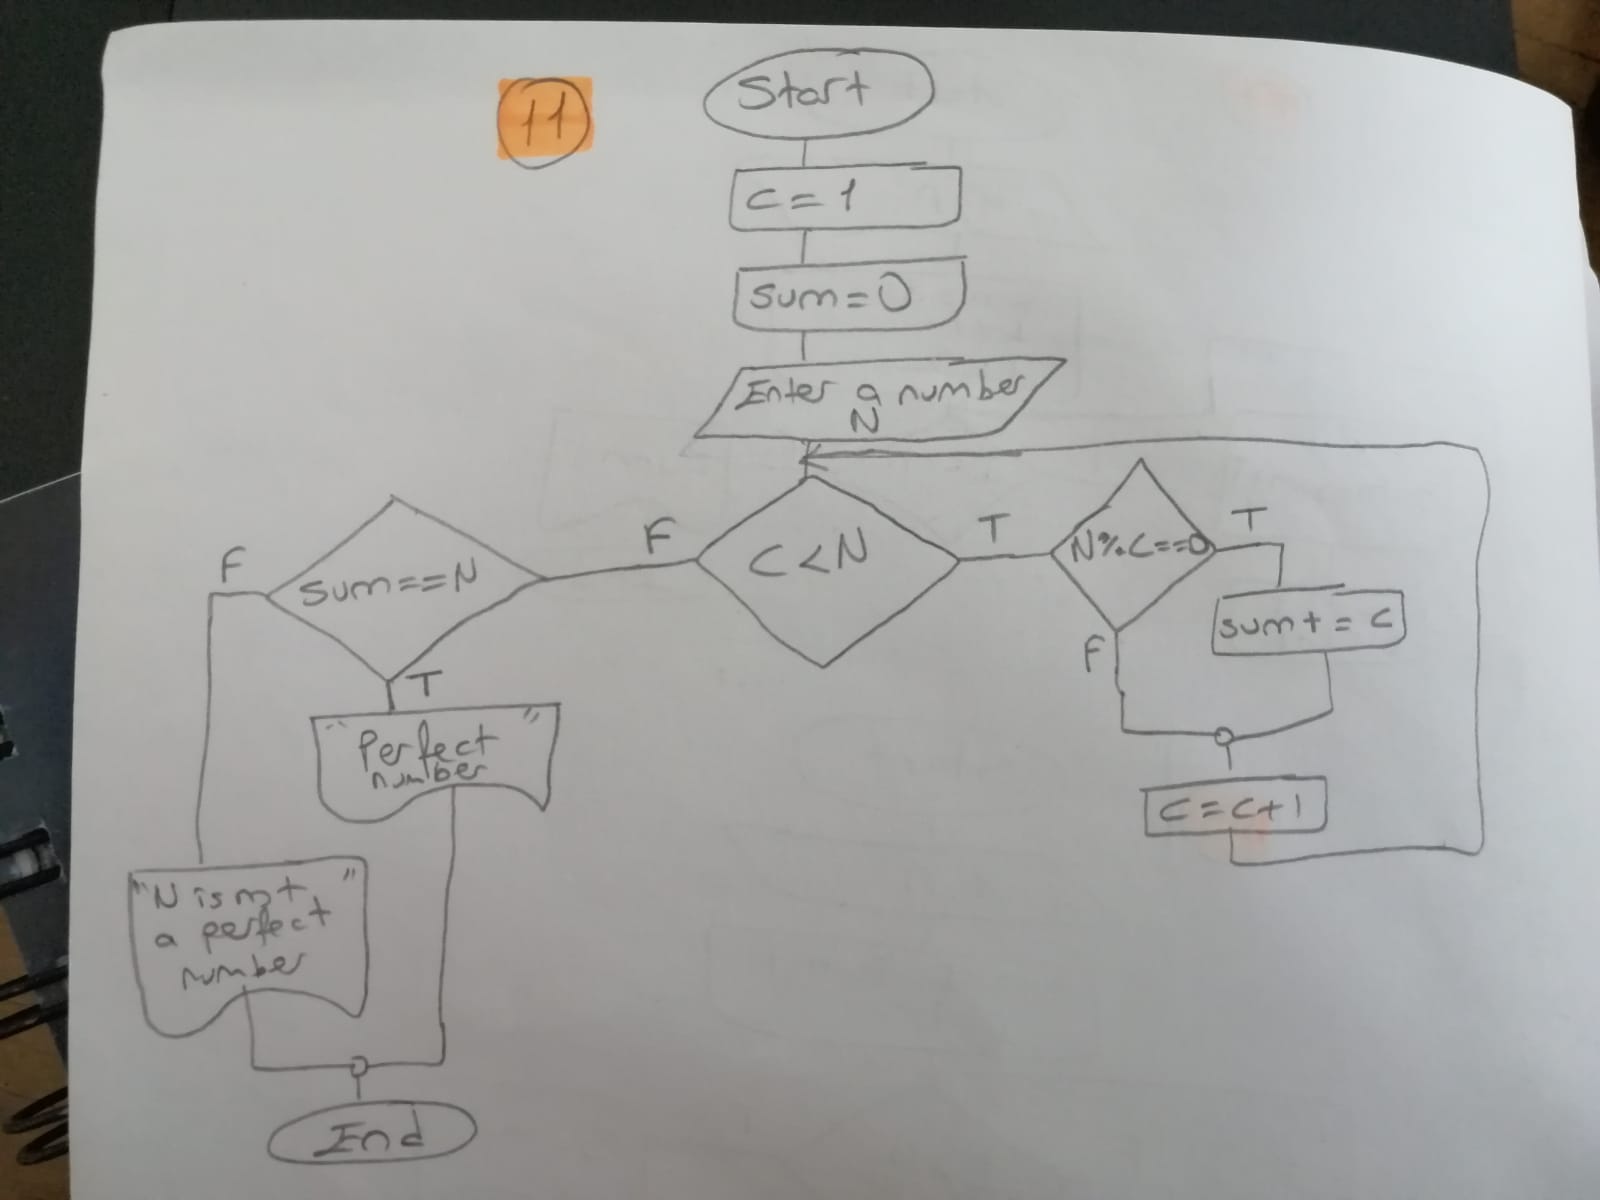 11
Start
C = 1
sum = 0
Enter a number
N
C < N
F
T
N%C==0
T
F
sum+ = C
C = C+1
sum==N
F
T
"Perfect
number"
"N is not
a perfect
number"
End